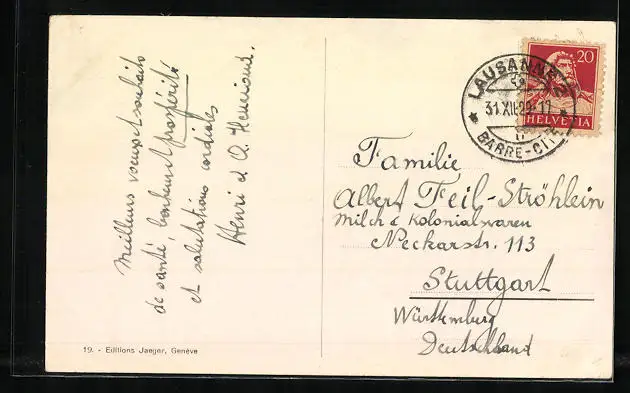 Meilleurs voeux et souhaits
de santé, bonheur, prospérité
et salutations cordiales
Henri et A.
19. - Editions Jaeger, Genève
20
HELVETIA
LAUSANNE
31.XII.29.-17
BARRE-CITÉ
Familie
Albert Feil-Ströhlein
Milch & Kolonialwaren
Neckarstr. 113
Stuttgart
Württemberg
Deutschland